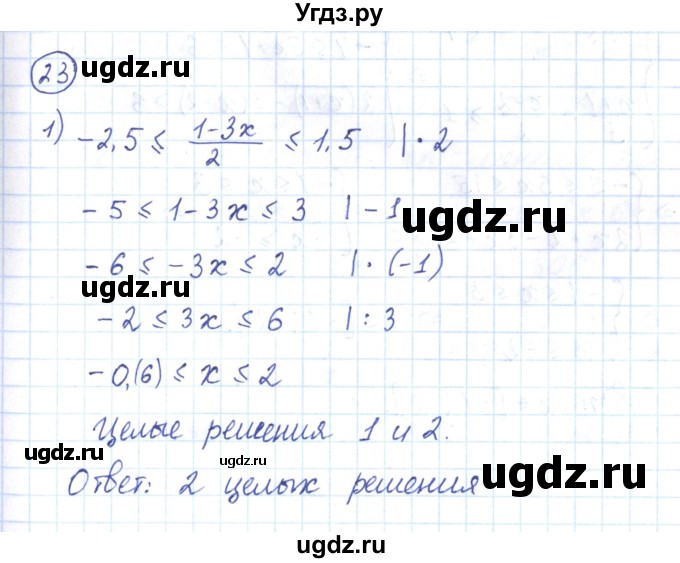 Угдз.ру
23
ugdz.ru
1) -2,5 ≤ (1-3x)/2 ≤ 1,5 | · 2
-5 ≤ 1-3x ≤ 3 | -1
ugdz.ru
-6 ≤ -3x ≤ 2 | · (-1)
ugdz.ru
-2 ≤ 3x ≤ 6 | : 3
-0,(6) ≤ x ≤ 2
Целые решения 1 и 2.
ugdz.ru
ugdz.ru
Ответ: 2 целых решения
ugdz.ru
ugdz.ru